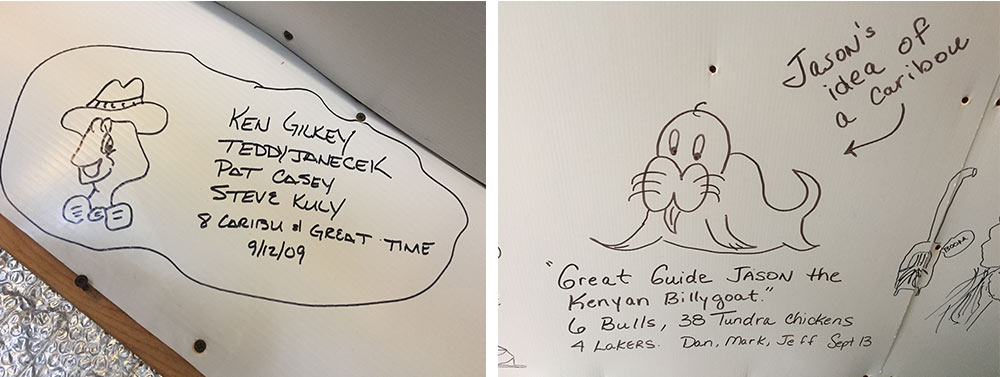 KEN GILKEY
TEDDY JANECEK
PAT CASEY
STEVE KULY
8 CARIBU & GREAT TIME
9/12/09
JASON'S
idea of
a Caribou
"Great Guide JASON the
Kenyan Billygoat."
6 Bulls, 38 Tundra Chickens
4 LAKERS. Dan, Mark, Jeff Sept 13